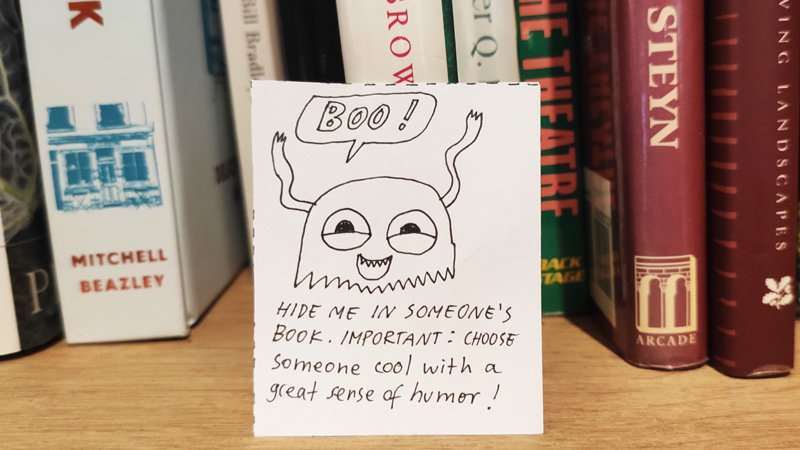 K
MITCHELL
BEAZLEY
Bill Bradl
BROW
er Q.
THE THEATRE
BACK
STAGE
STEYN
ARCADE
VING LANDSCAPES
BOO!
HIDE ME IN SOMEONE'S
BOOK. IMPORTANT: CHOOSE
someone cool with a
great sense of humor!